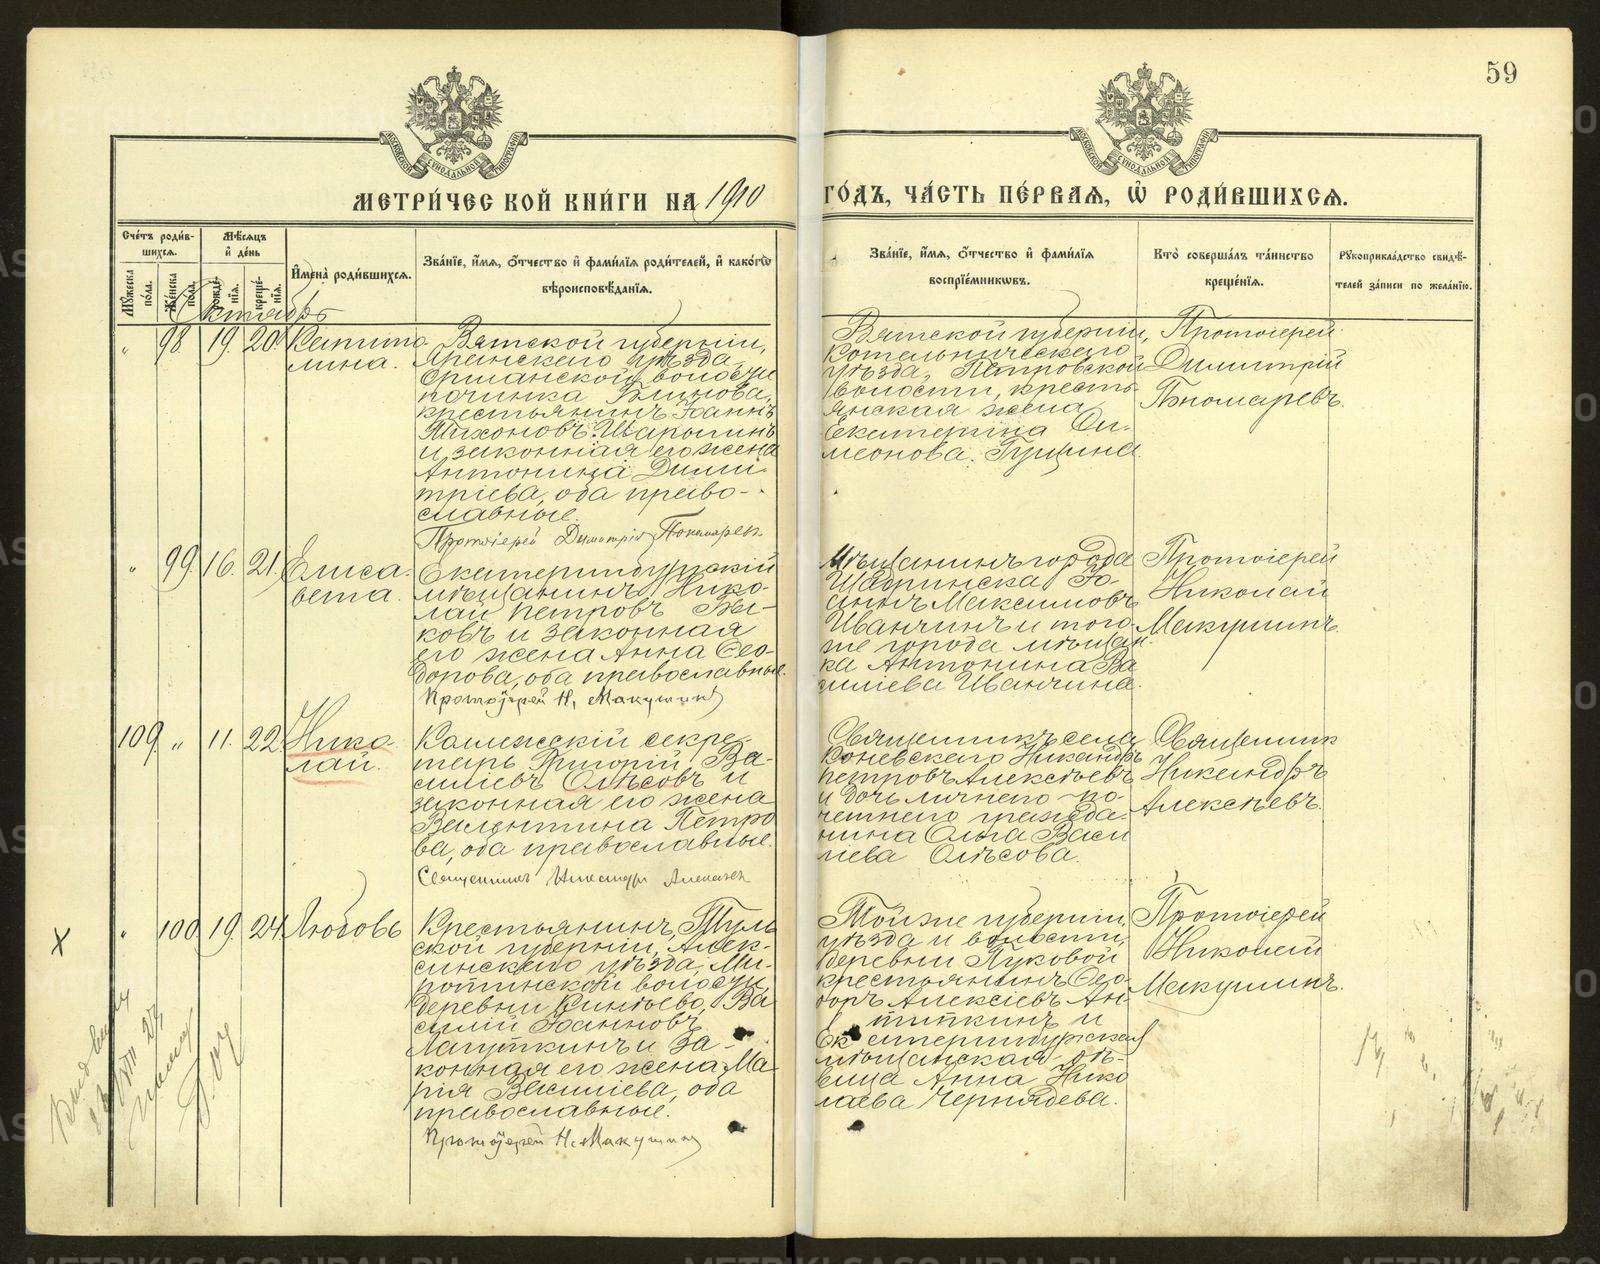 59
МЕТРИ́ЧЕСКОЙ КНИ́ГИ НА 1910
ГО́ДЪ, ЧА́СТЬ ПЕ́РВАЯ, Ѡ҆ РОДИ́ВШИХСѦ.
Сче́тъ роди́в-
шихсѧ.
Мѣ́сѧцъ
и҆ де́нь
Мꙋ́жеска по́ла.
Же́нска по́ла.
рожде́-
нїѧ.
креще́-
нїѧ.
И҆мена̀ роди́вшихсѧ.
Зва́нїе, и҆́мѧ, ѻ҆́тчество и҆ фами́лїѧ роди́телей, и҆ како́гѡ
вѣроисповѣ́данїѧ.
Зва́нїе, и҆́мѧ, ѻ҆́тчество и҆ фами́лїѧ
воспрїе́мникѡвъ.
Кто̀ соверша́лъ та́инство
креще́нїѧ.
Рꙋкоприкла́дство свидѣ́-
телей за́писи по жела́нїю.
Октябрь
„ 98 19. 20. Капито-
лина.
Вятской губернии,
Яранскаго уѣзда
Ермаиской волости
починка Блинова,
крестьянинъ Іоаннъ
Тихоновъ Шарыгинъ
и законная его жена
Антонина Дими-
тріева, оба право-
славные.
Протоіерей Димитрій Пономарев
Вятской губерніи,
Котельническаго
уѣзда, Петровской
волости, кресть-
янская жена
Екатерина Си-
меонова Гущина
Протоіерей
Димитрій
Пономаревъ.
„ 99. 16. 21. Елиса-
вета.
Екатеринбургскій
мѣщанинъ Нико-
лай Петровъ Бы-
ковъ и законная
его жена Анна Ѳео-
дорова, оба православные.
Протоіерей Н. Макушин
Мѣщанинъ города
Шадринска Іо-
аннъ Максимовъ
Иванчинъ и того-
же города мѣщан-
ка Антонина Ва-
силіева Иванчина.
Протоіерей
Николай
Макушинъ.
109. „ 11. 22. Нико-
лай.
Коллежскій секре-
тарь Григорій Ва-
силіевъ Олѣсовъ и
законная его жена
Валентина Петро
ва, оба православные.
Священникъ Никандръ Алексѣев
Священникъ села
Коневскаго Никандръ
Петровъ Алексѣевъ
и дочь личнаго по-
четнаго гражда-
нина Ольга Васи
ліева Олѣсова.
Священник
Никандръ
Алексѣевъ.
„ 100. 19. 24. Любовь
Крестьянинъ, Туль
ской губерніи, Алек-
синскаго уѣзда,
волости,
деревни Ва
силій Іоанновъ
Лагуткинъ и За-
конная его жена Ма
рія Василіева, оба
православные.
Протоіерей Н. Макушин
Той же губерніи,
уѣзда и волости,
деревни Луковой
крестьянинъ Ѳео-
доръ Алексіевъ Ан-
типкинъ и
Екатеринбургская
мѣщанская дѣ-
вица Анна Нико
лаева Чернядева.
Протоіерей
Николай
Макушинъ.
х